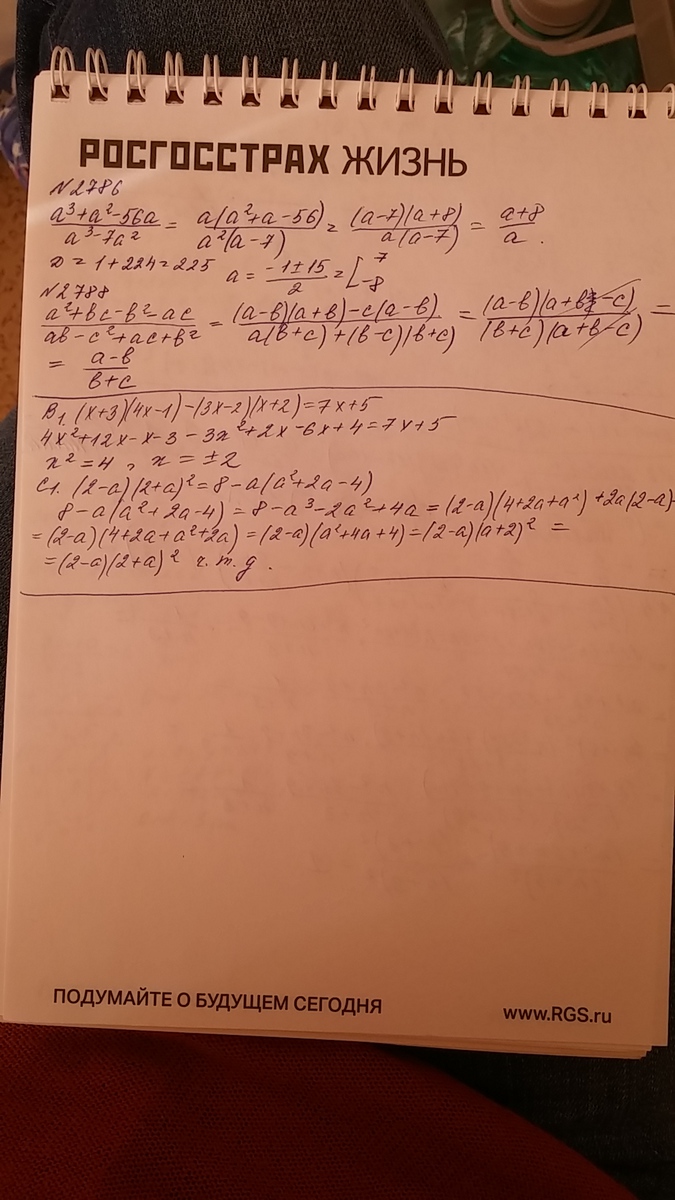 РОСГОССТРАХ ЖИЗНЬ
N2786
(a³+a²-56a)/(a³-7a²) = a(a²+a-56)/(a²(a-7)) = (a-7)(a+8)/(a(a-7)) = (a+8)/a .
D = 1+224=225 a = (-1±15)/2 = [ 7 -8
N2788
(a²+bc-b²-ac)/(ab-c²+ac+b²) = ((a-b)(a+b)-c(a-b))/(a(b+c)+(b-c)(b+c)) = (a-b)(a+b-c)/((b+c)(a+b-c)) =
= (a-b)/(b+c)
B1. (x+3)(4x-1)-(3x-2)(x+2)=7x+5
4x²+12x-x-3-3x²+2x-6x+4=7x+5
x²=4, x=±2
C1. (2-a)(2+a)²=8-a(a²+2a-4)
8-a(a²+2a-4)=8-a³-2a²+4a=(2-a)(4+2a+a²)+2a(2-a)=
=(2-a)(4+2a+a²+2a)=(2-a)(a²+4a+4)=(2-a)(a+2)² =
=(2-a)(2+a)² ч.т.д.
ПОДУМАЙТЕ О БУДУЩЕМ СЕГОДНЯ
www.RGS.ru